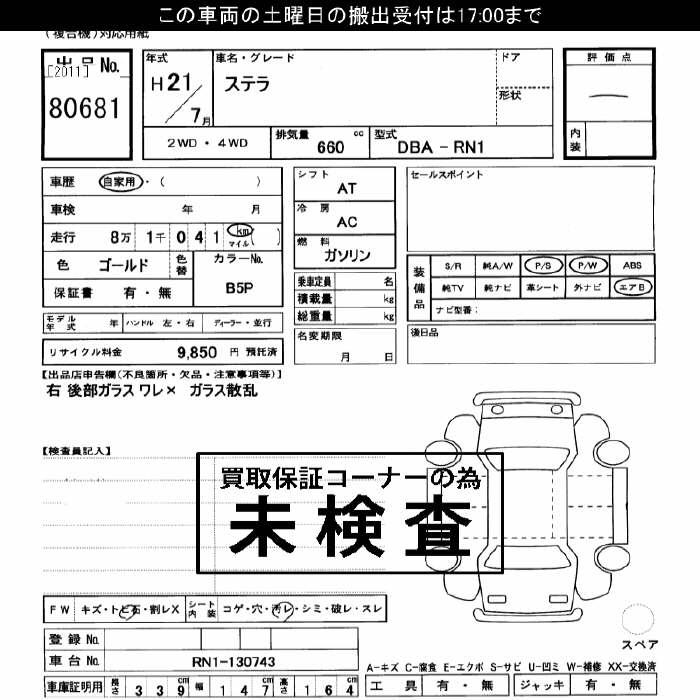 この車両の土曜日の搬出受付は17:00まで
(複合機)対応用紙
出品 No.
[2011]
80681
年式
H 21 / 7月
車名・グレード
ステラ
ドア
形状
評価点
内装
2WD・4WD
排気量 660 cc
型式 DBA - RN1
車歴 自家用・( )
車検 年 月
走行 8万 1千 0 4 1 km マイル ( )
色 ゴールド 色替
カラーNo. B5P
保証書 有・無
シフト AT
冷房 AC
燃料 ガソリン
乗車定員 名
積載量 kg
総重量 kg
セールスポイント
装備品
S/R 純A/W P/S P/W ABS
純TV 純ナビ 革シート 外ナビ エアB
ナビ型番:
モデル年式 年 ハンドル 左・右 ディーラー・並行
名変期限 月 日
後日品
リサイクル料金 9,850 円 預託済
【出品店申告欄(不良箇所・欠品・注意事項等)】
右 後部ガラス ワレ× ガラス散乱
【検査員記入】
買取保証コーナーの為
未検査
FW キズ・トビ石・割レX シート内装 コゲ・穴・汚レ・シミ・破レ・スレ
登録 No.
車台 No. RN1-130743
車庫証明用 長さ 339cm 幅 147cm 高さ 164cm
スペア
A-キズ C-腐食 E-エクボ S-サビ U-凹ミ W-補修 XX-交換済
工具 有・無 ジャッキ 有・無